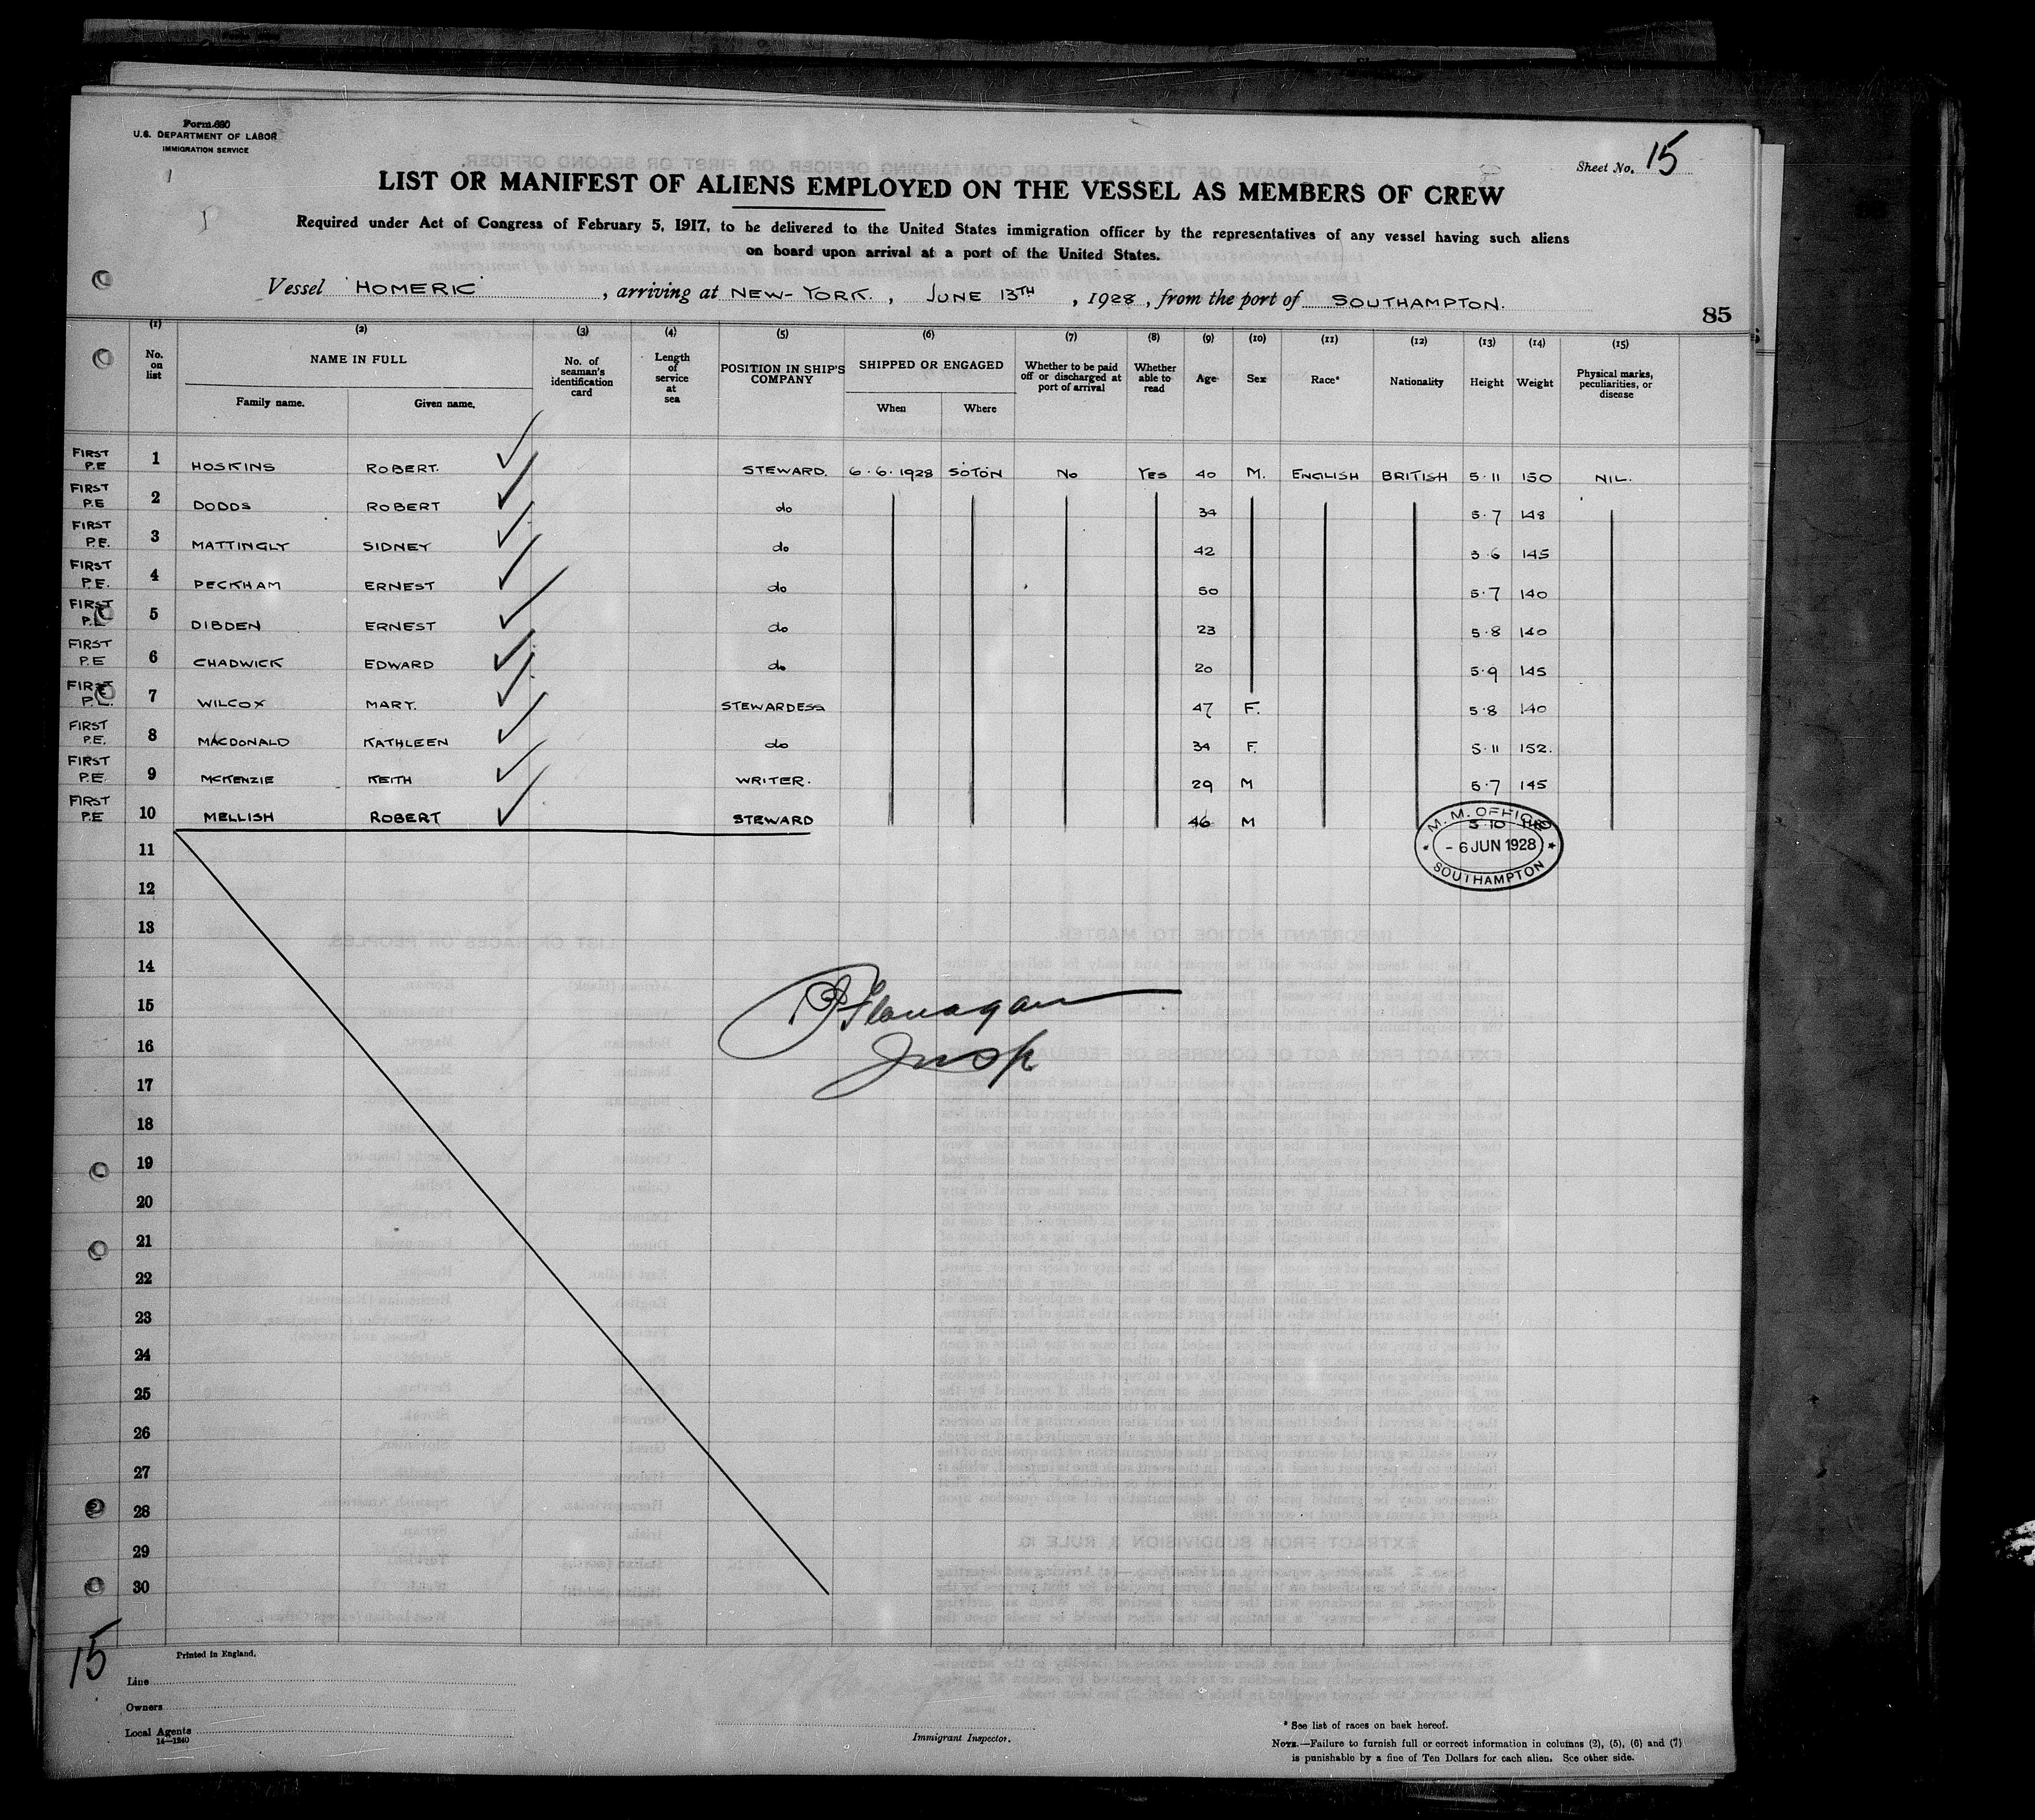 Form 680
U.S. DEPARTMENT OF LABOR
IMMIGRATION SERVICE
Sheet No. 15
LIST OR MANIFEST OF ALIENS EMPLOYED ON THE VESSEL AS MEMBERS OF CREW
Required under Act of Congress of February 5, 1917, to be delivered to the United States immigration officer by the representatives of any vessel having such aliens
on board upon arrival at a port of the United States.
Vessel "HOMERIC", arriving at NEW-YORK., JUNE 13TH, 1928, from the port of SOUTHAMPTON.
85
(1) (2) (3) (4) (5) (6) (7) (8) (9) (10) (11) (12) (13) (14) (15)
No. on list NAME IN FULL Family name. Given name. No. of seaman's identification card Length of service at sea POSITION IN SHIP'S COMPANY SHIPPED OR ENGAGED When Where Whether to be paid off or discharged at port of arrival Whether able to read Age Sex Race* Nationality Height Weight Physical marks, peculiarities, or disease
FIRST P.E 1 HOSKINS ROBERT. STEWARD. 6.6.1928 SOTON No Yes 40 M. ENGLISH BRITISH 5.11 150 NIL.
FIRST P.E 2 DODDS ROBERT do 34 5.7 148
FIRST P.E. 3 MATTINGLY SIDNEY do 42 5.6 145
FIRST P.E. 4 PECKHAM ERNEST do 50 5.7 140
FIRST P.E 5 DIBDEN ERNEST do 23 5.8 140
FIRST P.E 6 CHADWICK EDWARD do 20 5.9 145
FIRST P.E. 7 WILCOX MARY. STEWARDESS 47 F. 5.8 140
FIRST P.E. 8 MACDONALD KATHLEEN do 34 F. 5.11 152.
FIRST P.E. 9 MCKENZIE KEITH WRITER. 29 M 5.7 145
FIRST P.E 10 MELLISH ROBERT STEWARD 46 M 5.10
M.M. OFFICE
- 6 JUN 1928
SOUTHAMPTON
11
12
13
14
15
16
17
18
19
20
21
22
23
24
25
26
27
28
29
30
Flanagan
Insp
15
Printed in England.
Line
Owners
Local Agents
14—1240
Immigrant Inspector.
* See list of races on back hereof.
NOTE.—Failure to furnish full or correct information in columns (2), (5), (6) and (7)
is punishable by a fine of Ten Dollars for each alien. See other side.